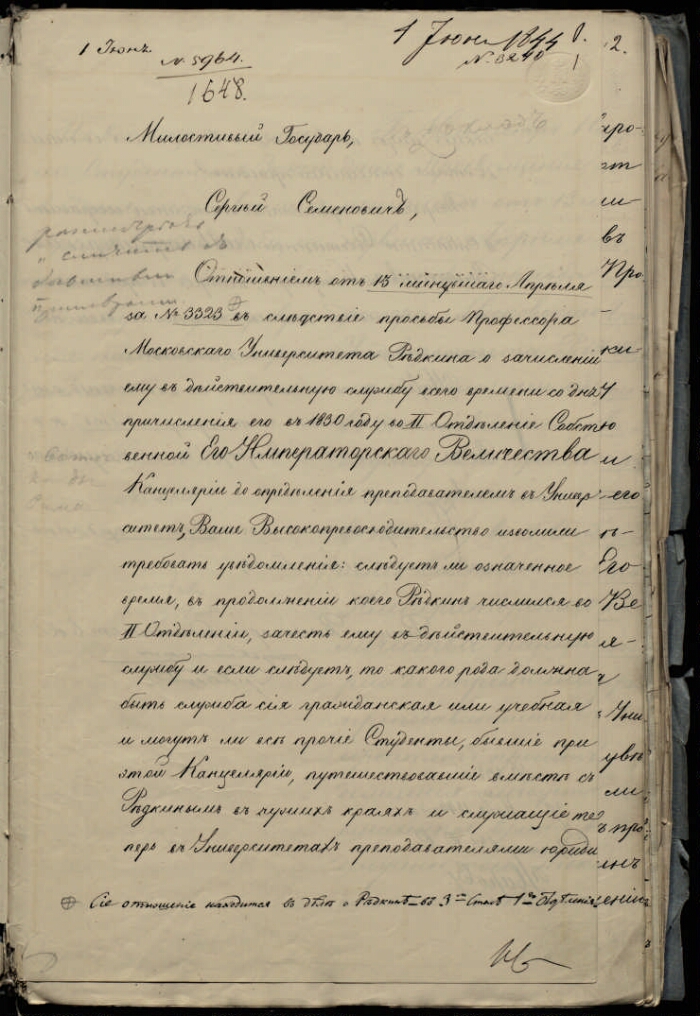 1 Июнь
№ 5964.
1648.
1 Июня 1844 г.
№ 3240
2.
Милостивый Государь,
Сергѣй Семеновичъ,
Отношеніемъ отъ 13 минувшаго Апрѣля
за № 3323 ⊕ въ слѣдствіе просьбы Профессора
Московскаго Университета Рѣдкина о зачисленіи
ему въ дѣйствительную службу всего времени со дня
причисленія его въ 1830 году во II Отдѣленіе Собст
венной Его Императорскаго Величества
Канцеляріи до опредѣленія преподавателемъ въ Универ
ситетъ, Ваше Высокопревосходительство изволили
требовать увѣдомленія: слѣдуетъ ли означенное
время, въ продолженіи коего Рѣдкинъ числился во
II Отдѣленіи, зачесть ему въ дѣйствительную
службу и если слѣдуетъ, то какого рода должна
быть служба сія гражданская или учебная
и могутъ ли всѣ прочіе Студенты, бывшіе при
этой Канцеляріи, путешествовавшіе вмѣстѣ съ
Рѣдкинымъ въ чужихъ краяхъ и служащіе те
перь въ Университетахъ преподавателями юриди
⊕ Сіе отношеніе находится въ дѣлѣ о Рѣдкинѣ въ 3-мъ Столѣ 1-го Отдѣленія.